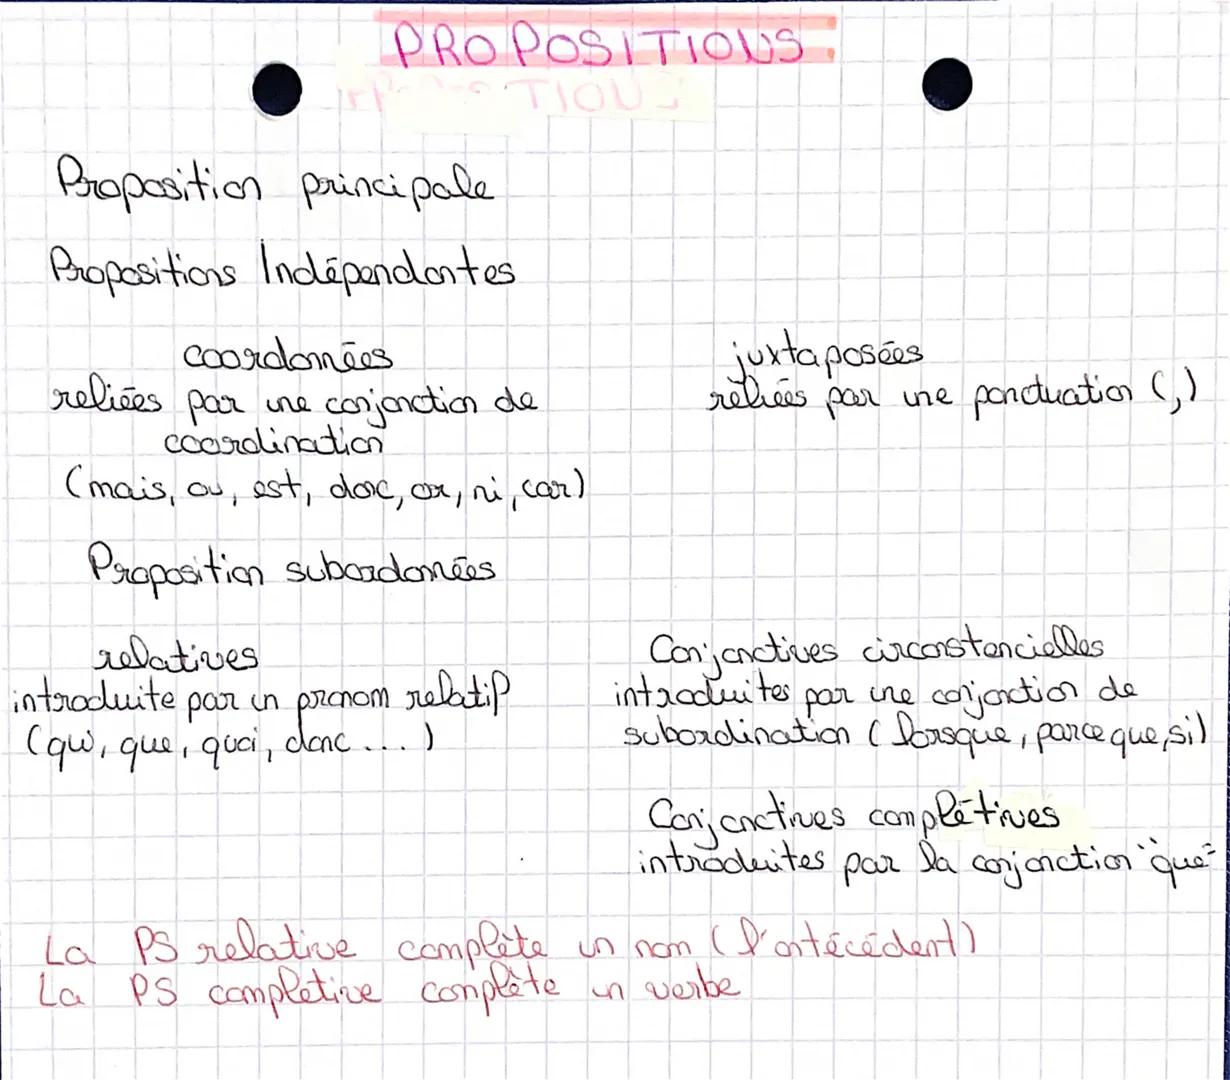 PROPOSITIONS
TIONS
Proposition principale
Propositions Indépendantes
coordonnées
reliées par une conjonction de
coordination
(mais, ou, est, donc, or, ni, car)
juxtaposées
reliées par une ponctuation (,)
Proposition subordonnées
relatives
introduite par un pronom relatif
(qui, que, quoi, donc ... )
Conjonctives circonstancielles
introduites par une conjonction de
subordination (lorsque, parce que, si)
Conjonctives complétives
introduites par la conjonction "que"
La PS relative complète un nom (l'antécédent)
La PS completive complète un verbe